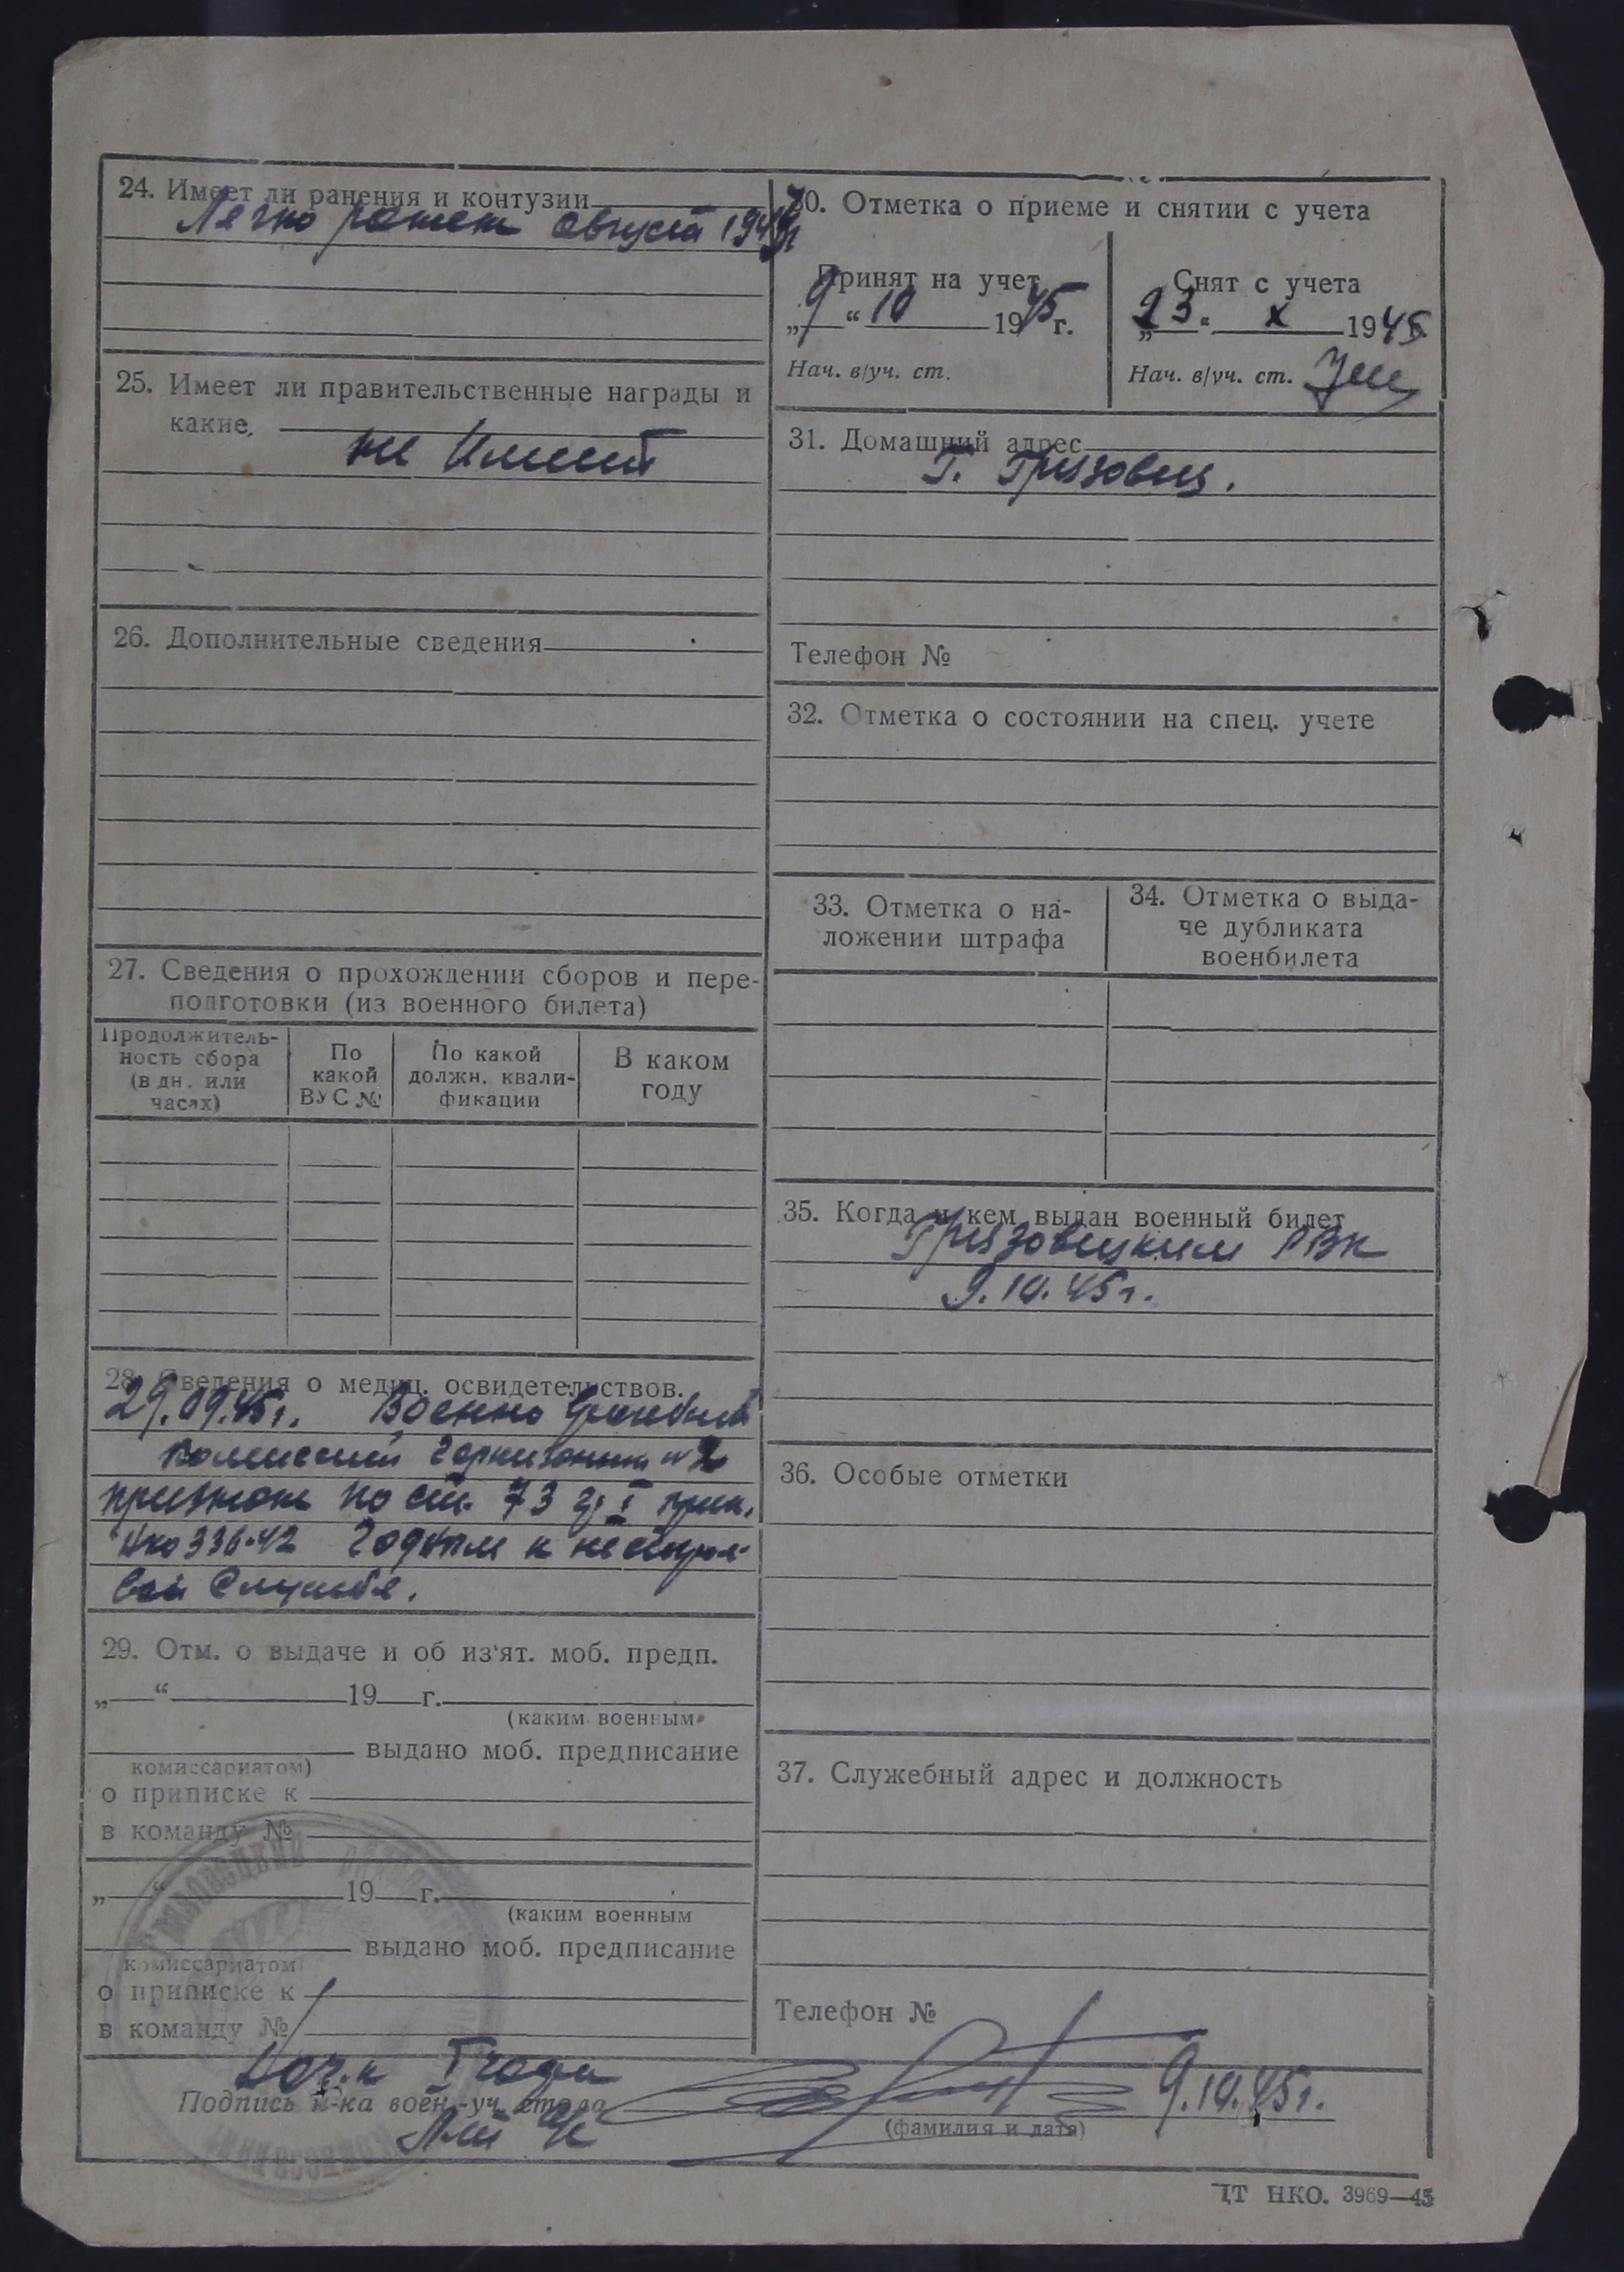 24. Имеет ли ранения и контузии
Легко ранен август 194
25. Имеет ли правительственные награды и
какие,
не имеет
26. Дополнительные сведения
27. Сведения о прохождении сборов и пере-
подготовки (из военного билета)
Продолжитель-
ность сбора
(в дн. или
часах)
По
какой
ВУС №
По какой
должн. квали-
фикации
В каком
году
28. Сведения о медиц. освидетельствов.
29.09.45г. Военно врачебной
комиссией гарнизонной №2
признан по ст. 73 гр I прик.
нко 336-42 годным к нестрое-
вой службе.
29. Отм. о выдаче и об из'ят. моб. предп.
„ “ 19 г.
(каким военным
выдано моб. предписание
комиссариатом)
о приписке к
в команду №
„ “ 19 г.
(каким военным
выдано моб. предписание
комиссариатом
о приписке к
в команду №
30. Отметка о приеме и снятии с учета
Принят на учет
„9“ 10 1945 г.
Нач. в/уч. ст.
Снят с учета
„23“ X 1945
Нач. в/уч. ст.
31. Домашний адрес
г. Грязовец.
Телефон №
32. Отметка о состоянии на спец. учете
33. Отметка о на-
ложении штрафа
34. Отметка о выда-
че дубликата
военбилета
35. Когда и кем выдан военный билет
Грязовецким РВК
9.10.45г.
36. Особые отметки
37. Служебный адрес и должность
Телефон №
Нач.к I части
Подпись н-ка воен.-уч. стола
9.10.45г.
(фамилия и дата)
ЦТ НКО. 3969—45